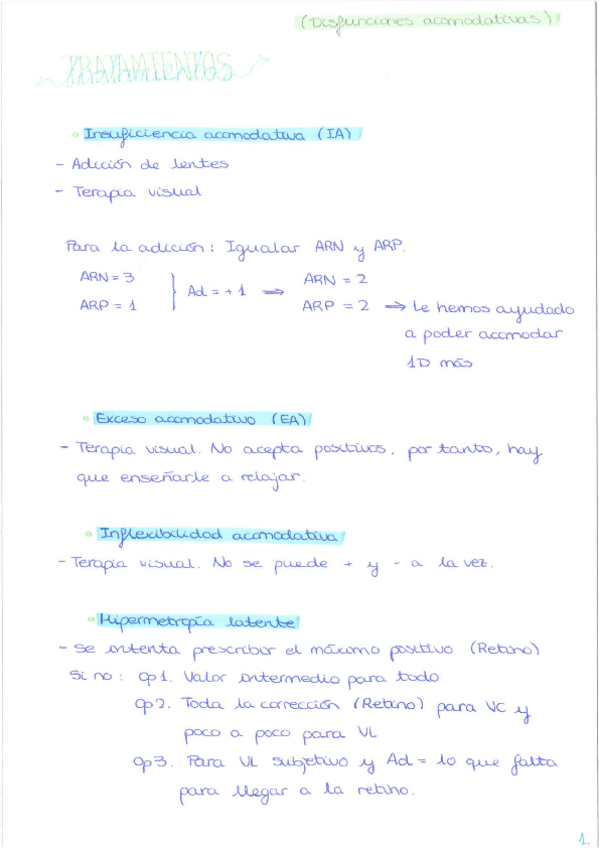 (Disfunciones acomodativas)
TRATAMIENTOS
Insuficiencia acomodativa (IA)
- Adición de lentes
- Terapia visual
Para la adición: Igualar ARN y ARP.
ARN = 3 } Ad = +1 ⇒ ARN = 2
ARP = 1 ARP = 2 ⇒ Le hemos ayudado
a poder acomodar
1D más
Exceso acomodativo (EA)
- Terapia visual. No acepta positivos, por tanto, hay
que enseñarle a relajar.
Inflexibilidad acomodativa
- Terapia visual. No se puede + y - a la vez.
Hipermetropía latente
- Se intenta prescribir el máximo positivo (Retino)
Si no: Op1. Valor intermedio para todo
Op2. Toda la corrección (Retino) para VC y
poco a poco para VL
Op3. Para VL subjetivo y Ad = lo que falta
para llegar a la retino.
1.